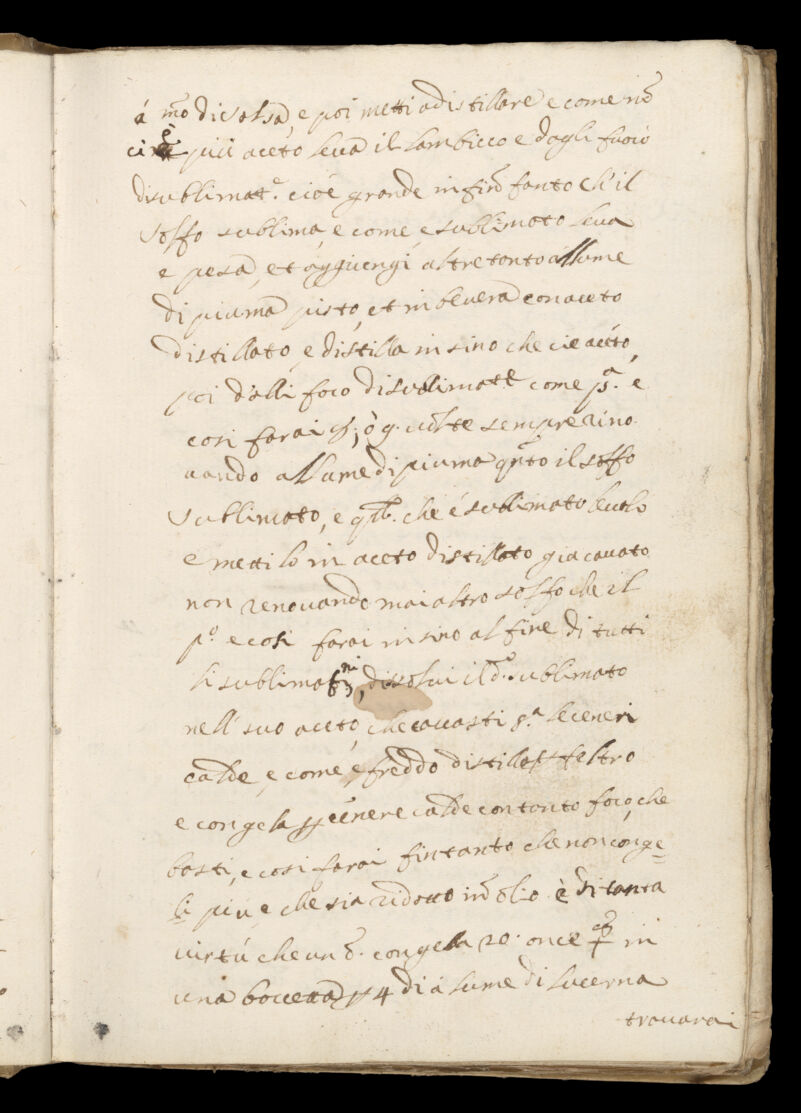 á mõ di salsa, e poi metti a distillare e come nõ
ci è più aceto leva il lambicco e dagli fuoco
di sublimat.e cioè grande in fino tanto ch'il
solfo sublima, e come è sublimato leva
e pesa, et aggiungi altretanto allume
di piuma pisto, et inbevera con aceto
distillato, e distilla in sino che cie aceto,
poi dalli foco di sublimat.e come p.a e
cosi farai 8; ò 9. volte sempre rino
vando allume di piuma q.nto il solfo
sublimato, e q.do che è sublimato levalo
e mettilo in aceto distillato gia cavato
non renovando mai altro solfo che il
p.o e cosi farai in sino al fine di tutti
li sublimationi, dissolvi il d.o sublimato
nell' suo aceto, che cavasti p.a le ceneri
calde, e come è freddo distilla p feltro
e congela p cenere calde con tanto foco, che
basti, e cosi farai fintanto che non conge=
li più e che sia ridotto in olio è di tanta
virtù che un õ. congela 20. once ☿ in
una boccetta p 4 dì a lume di lucerna
trovarai